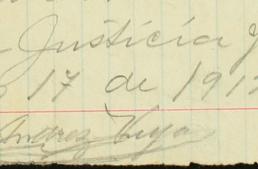 Justicia y
17 de 191
Andres Vega